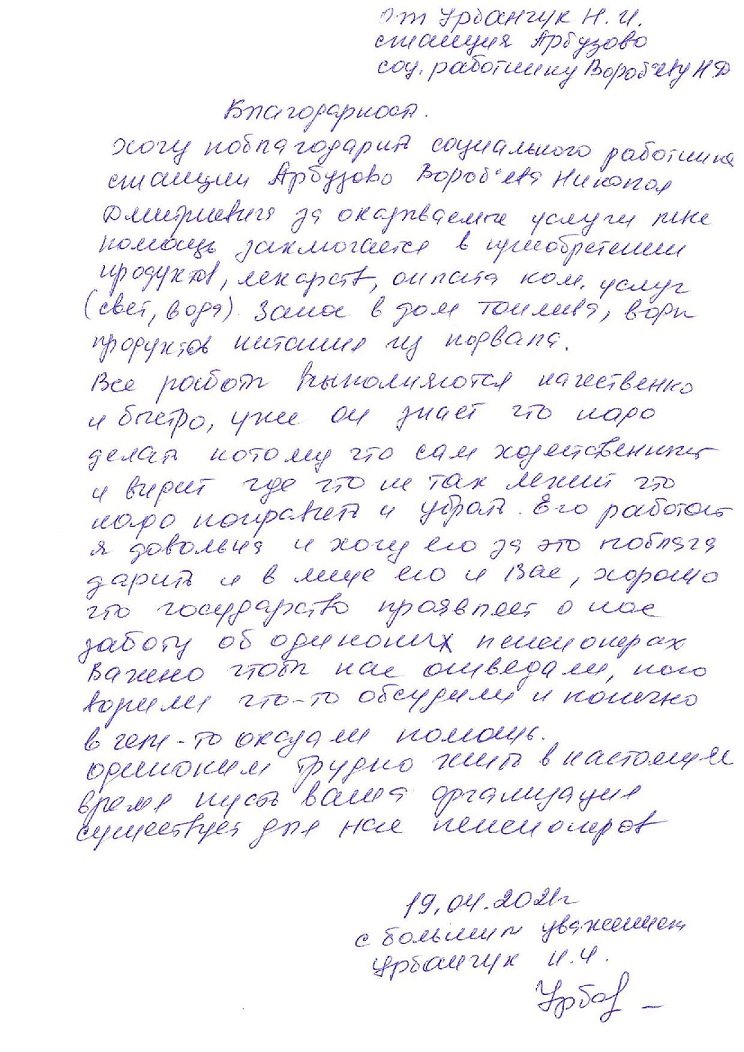 от Урбанчук Н. И.
станция Арбузово
соц. работнику Воробьеву Н Д
Благодарность.
хочу поблагодарить социального работника
станции Арбузово Воробьева Николая
Дмитриевича за оказываемые услуги мне
помощь заключается в приобретении
продуктов, лекарств, оплата ком. услуг
(свет, вода). Занос в дом топлива, воды
продуктов питания из подвала.
Все работы выполняются качественно
и быстро, уже он знает что надо
делать потому что сам хозяйственник
и видит где что не так лежит что
надо поправить и убрать. Его работой
я довольна и хочу его за это поблага
дарить и в лице его и Вас, хорошо
что государство проявляет о нас
заботу об одиноких пенсионерах
Важно чтобы нас отведали, пого
ворили что-то обсудили и конечно
в чем-то оказали помощь.
одиноким трудно жить в настоящее
время пусть ваша организация
существует для нас пенсионеров
19.04.2021г
с большим уважением
Урбанчук Н. И.